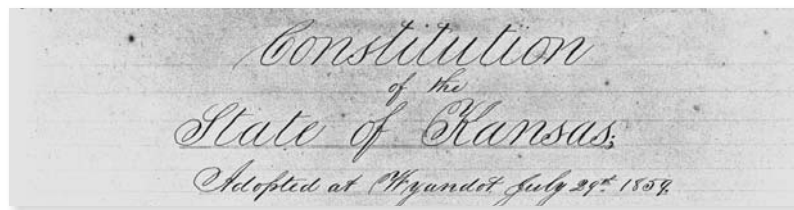 Constitution
of the
State of Kansas;
Adopted at Wyandot July 29th 1859.